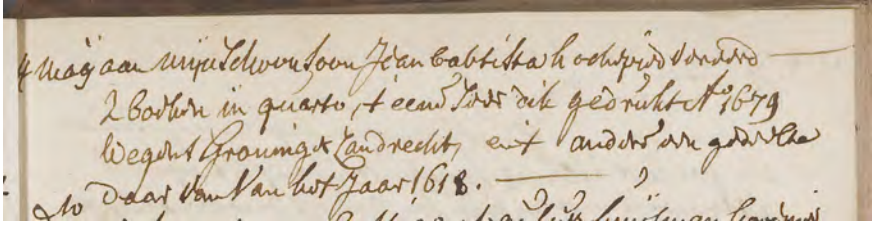 4 Maij aan mijn Schoonsoon Jean babtista hochepied vereerd
2 boeken in quarto, t eene seer dik gedrukt Ao 1679
wegens Groninger Landrecht, en t andere een gedeelte
daar van van het Jaar 1618.
do